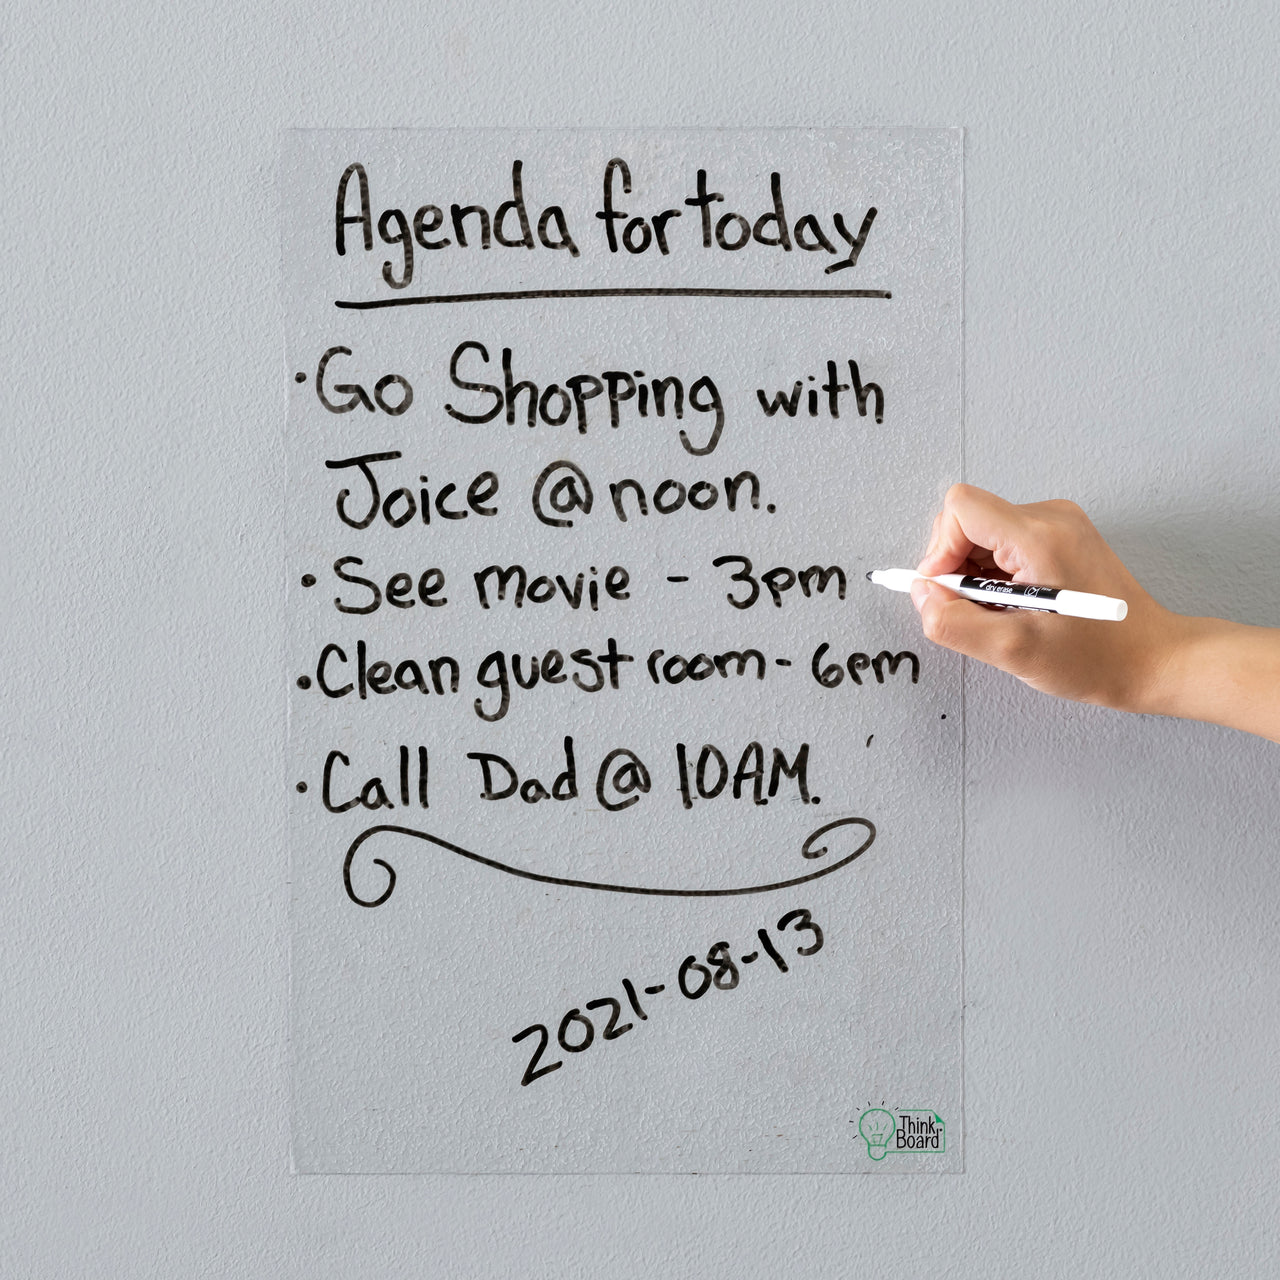 Agenda for today
• Go Shopping with
Joice @ noon.
• See movie - 3pm
• Clean guest room - 6pm
• Call Dad @ 10AM.
2021-08-13
Think
Board
dry erase